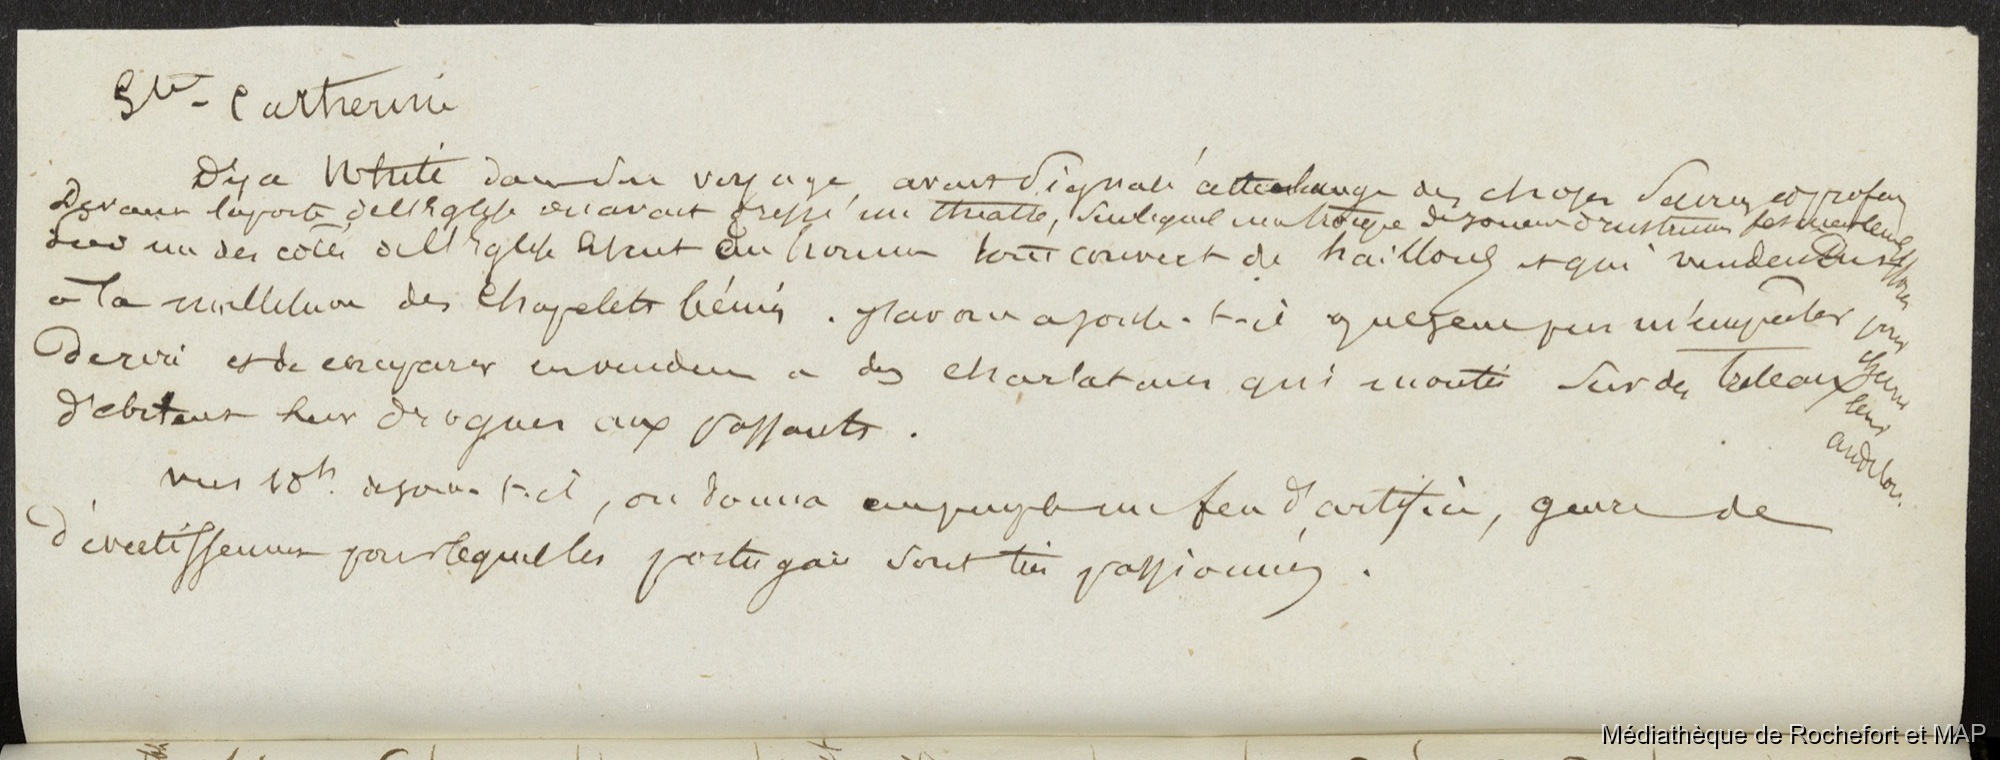 Ste-Catherine
Déja White dans son voyage, avait signalé cette echange des choses sacrées et profanes
Devant la porte de l'Eglise on avait dressé un theatre, sur lequel une troupe de joueurs d'instrumens fesaient leurs
sur un des côtés de l'Eglise étaient un homme tout couvert de haillons et qui vendait
efforts pour charmer leurs auditeurs.
à la multitude des chapelets bénis. J'avoue ajoute-t-il que je ne pus m'empêcher
de rire et de comparer ces vendeurs a des charlatans qui montés sur des treteaux
débitent leurs drogues aux passants.
vers 10h. ajoute-t-il, on donna au peuple un feu d'artifice, genre de
divertissement pour lequel les portugais sont très passionnés.
Médiathèque de Rochefort et MAP